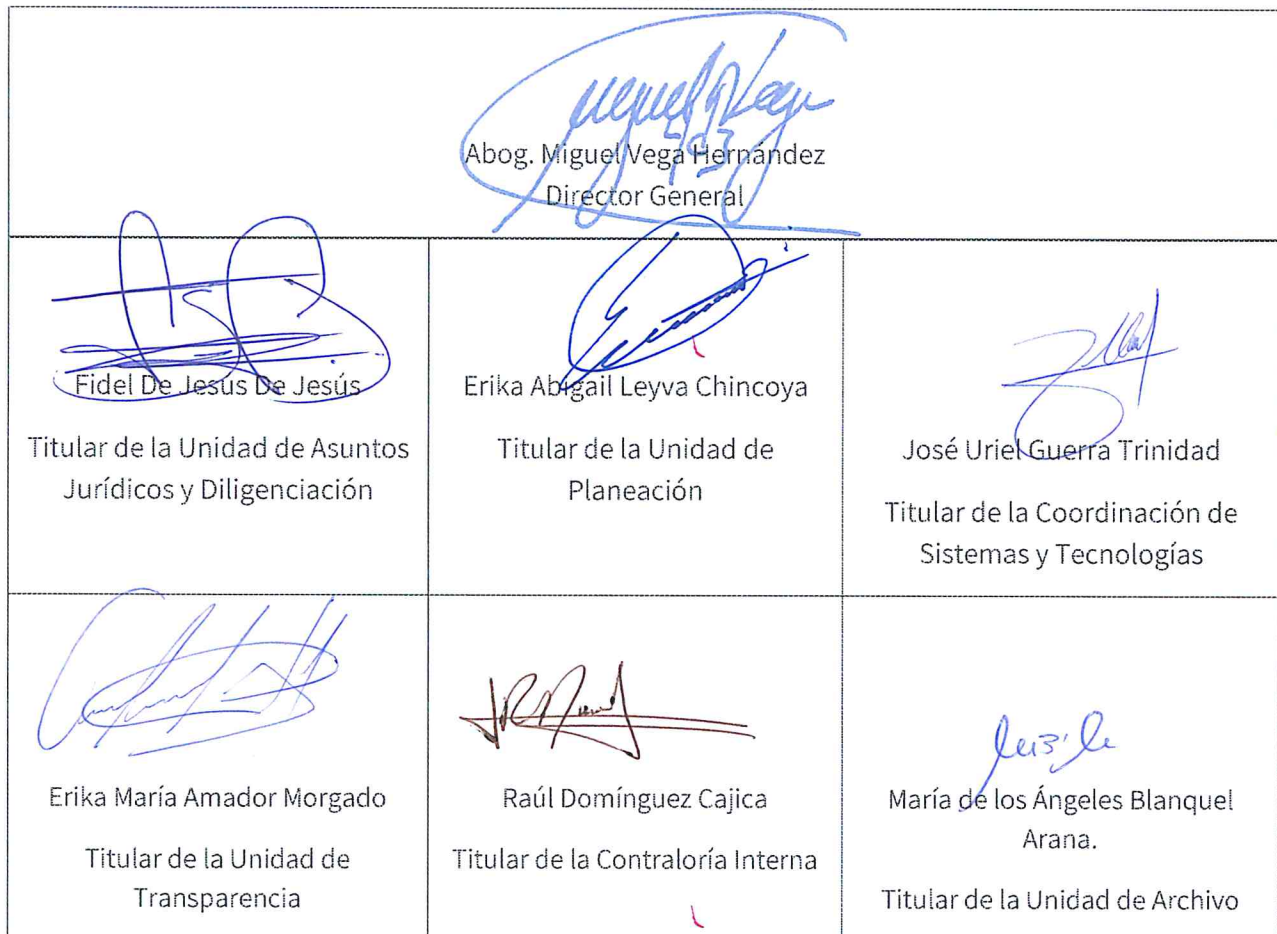 Abog. Miguel Vega Hernández
Director General
Fidel De Jesús De Jesús
Titular de la Unidad de Asuntos
Jurídicos y Diligenciación
Erika Abigail Leyva Chincoya
Titular de la Unidad de
Planeación
José Uriel Guerra Trinidad
Titular de la Coordinación de
Sistemas y Tecnologías
Erika María Amador Morgado
Titular de la Unidad de
Transparencia
Raúl Domínguez Cajica
Titular de la Contraloría Interna
María de los Ángeles Blanquel
Arana.
Titular de la Unidad de Archivo